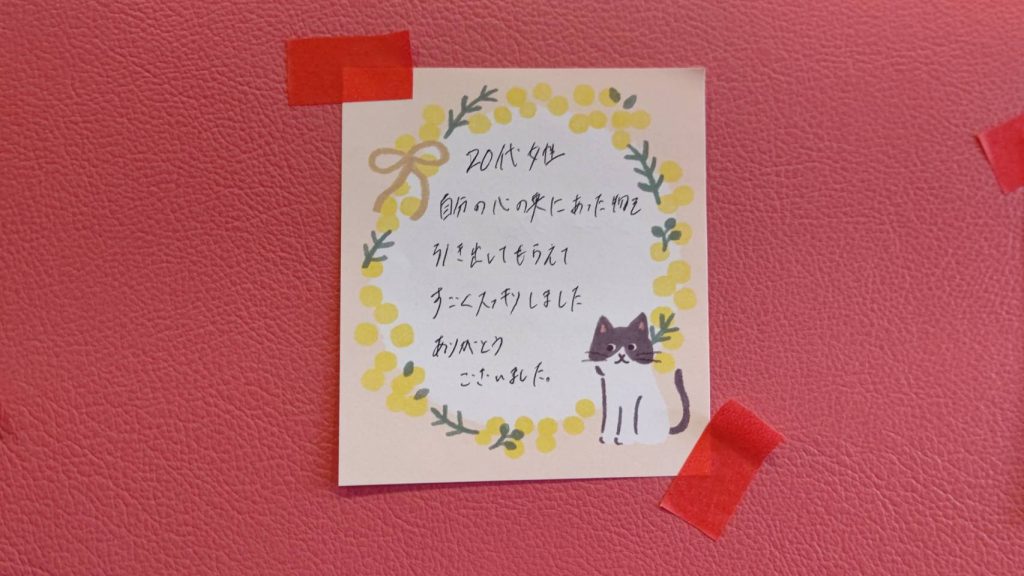 20代 女性
自分の心の奥にあった物を
引き出してもらえて
すごくスッキリしました
ありがとう
ございました。